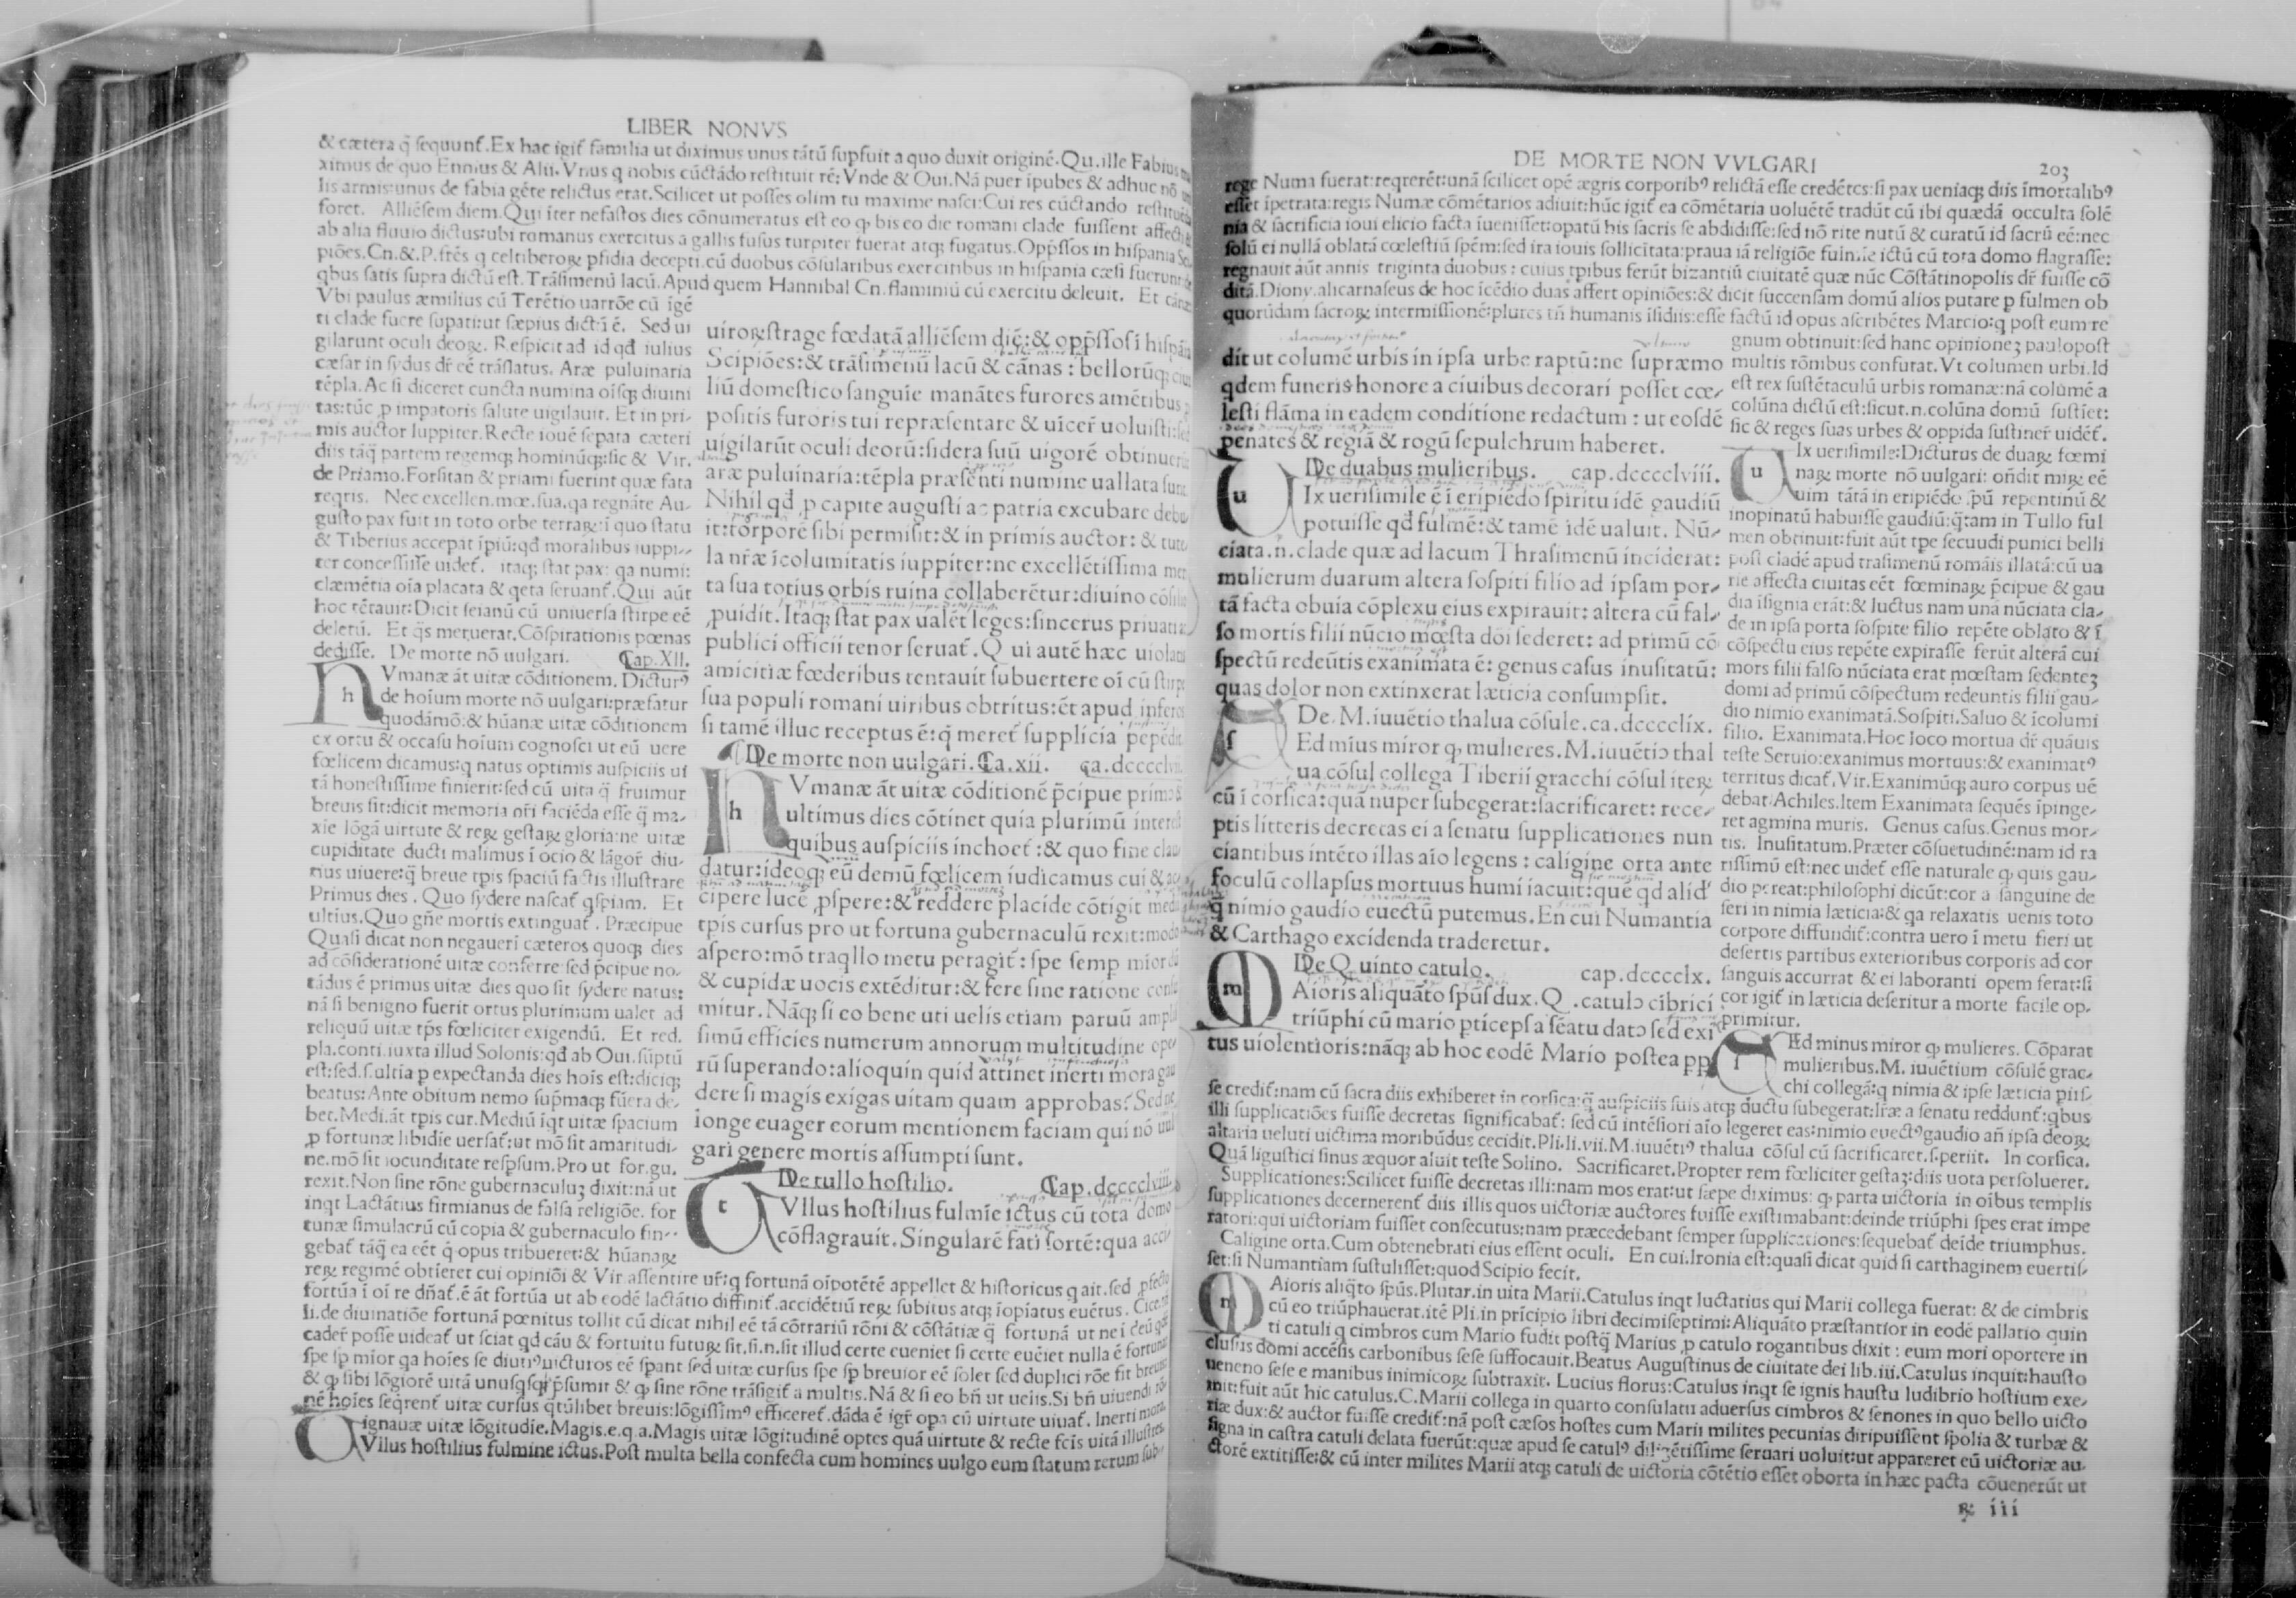 LIBER NONVS
& cætera q̃ sequunt᷑. Ex hac igit᷑ familia ut diximus unus tãtũ supfuit a quo duxit originẽ. Qu. ille Fabius
ximus de quo Ennius & Alii. Vnus q nobis cũctãdo restituit rẽ: Vnde & Oui. Nã puer ĩpubes & adhuc nõ
lis armis: unus de fabia gẽte relictus erat. Scilicet ut posses olim tu maxime nasci: Cui res cũctando restituẽda
foret. Alliẽsem diem. Qui ĩter nefastos dies cõnumeratus est eo ꝙ bis eo die romani clade fuissent affecti
ab alia fluuio dictus: ubi romanus exercitus a gallis fusus turpiter fuerat atqꝫ fugatus. Opp̃ssos in hispania
piões. Cn. &. P. frẽs q celtiberoꝝ pfidia decepti cũ duobus cõsularibus exercitibus in hispania cæsi fuerunt
qbus satis supra dictũ est. Trãsimenũ lacũ. Apud quem Hannibal Cn. flaminiũ cũ exercitu deleuit. Et cãnas
Vbi paulus æmilius cũ Terẽtio uarrõe cũ ĩgẽ
ti clade fuere supati: ut sæpius dictũ ẽ. Sed ui
gilarunt oculi deoꝝ. Respicit ad id qđ iulius
cæsar in sydus dr̃ eẽ trãslatus. Aræ puluinaria
tẽpla. Ac si diceret cuncta numina oĩsqꝫ diuini
tas: tũc ꝓ impatoris salute uigilauit. Et in pri-
mis auctor Iuppiter. Recte iouẽ separa cæteri
diis tãq̃ partem regemqꝫ hominũqꝫ: sic & Vir.
de Priamo. Forsitan & priami fuerint quæ fata
reqris. Nec excellen. mœ. sua. qa regnãte Au-
gusto pax fuit in toto orbe terraꝝ: ĩ quo statu
& Tiberius accepat ĩpiũ: qđ moralibus iuppi-
ter concessisse uidet᷑. itaqꝫ stat pax: qa numi:
clæmẽtia oĩa placata & qeta seruant᷑. Qui aũt
hoc tẽtauit: Dicit seianũ cũ uniuersa stirpe eẽ
deletũ. Et q̃s metuerat. Cõspirationis pœnas
dedisse. De morte nõ uulgari. Cap. XII.
h Vmanæ ãt uitæ cõditionem. Dicturꝰ
de hoĩum morte nõ uulgari: præfatur
quodãmõ: & hũanæ uitæ cõditionem
ex ortu & occasu hoĩum cognosci ut eũ uere
fœlicem dicamus: q natus optimis auspiciis ui
tã honestissime finierit: sed cũ uita q̃ fruimur
breuis sit: dicit memoria nr̃i faciẽda esse q̃ ma-
xie lõgã uirtute & reꝝ gestaꝝ gloria: ne uitæ
cupiditate ducti malimus ĩ ocio & lãgor᷑ diu-
tius uiuere: q̃ breue tpis spaciũ factis illustrare
Primus dies. Quo sydere nascat᷑ qspiam. Et
ultius. Quo gñe mortis extinguat᷑. Præcipue
Quasi dicat non negaueri cæteros quoqꝫ dies
ad cõsiderationẽ uitæ conferre: sed p̃cipue no-
tãdus ẽ primus uitæ dies quo sit sydere natus:
nã si benigno fuerit ortus plurimum ualet ad
reliquũ uitæ tp̃s fœliciter exigendũ. Et red.
pla. conti. iuxta illud Solonis: qđ ab Oui. sũptũ
est: sed. s. ultia p expectanda dies hoĩs est: diciqꝫ
beatus: Ante obitum nemo sup̃maqꝫ fũera de-
bet. Medi. ãt tpis cur. Mediũ igt uitæ spacium
ꝓ fortunæ libidĩe uersat᷑: ut mõ sit amaritudi-
ne. mõ sit iocunditate respsum. Pro ut for. gu.
rexit. Non sine rõne gubernaculuꝫ dixit: nã ut
inqt Lactãtius firmianus de falsa religiõe. for
tunæ simulacrũ cũ copia & gubernaculo fin-
gebat᷑ tãq̃ ea eẽt q̃ opus tribueret: & hũanaꝝ
reꝝ regimẽ obtĩeret cui opiniõi & Vir assentire ur᷑: q fortunã oĩpotẽtẽ appellet & historicus q ait. sed ꝓfecto
fortũa ĩ oĩ re dñat᷑. ẽ ãt fortũa ut ab eodẽ lactãtio diffinit᷑. accidẽtiũ reꝝ subitus atqꝫ ĩopĩatus euẽtus. Cice.
li. de diuinatiõe fortunã pœnitus tollit cũ dicat nihil eẽ tã cõtrariũ rõni & cõstãtiæ q̃ fortunã ut ne ĩ deũ
cader᷑ posse uideat᷑ ut sciat qđ cãu & fortuitu futuꝝ sit. si. n. sit illud certe eueniet si certe euẽiet nulla ẽ fortuna
spe sp mĩor qa hoĩes se diutiꝰ uicturos eẽ spant sed uitæ cursus spe sp breuior eẽ solet sed duplici rõe fit breuior
& ꝙ sibi lõgiorẽ uitã unusqsqꝫ p̃sumit & ꝙ sine rõne trãsigit᷑ a multis. Nã & si eo bñ ut uelis. Si bñ uiuendi
nẽ hoĩes seqrent᷑ uitæ cursus q̃tũlibet breuis: lõgissimꝰ efficeret᷑. dãda ẽ igr᷑ opa cũ uirtute uiuat᷑. Inerti mora.
ignauæ uitæ lõgitudĩe. Magis. e. q. a. Magis uitæ lõgitudinẽ optes quã uirtute & recte fc̃is uitã illustres.
T Vllus hostilius fulmine ictus. Post multa bella confecta cum homines uulgo eum statum rerum
uiroꝝ strage fœdatã alliẽsem diẽ: & opp̃ssos ĩ hispãia
Scipiões: & trãsimenũ lacũ & cãnas: bellorũqꝫ
liũ domestico sanguĩe manãtes furores amẽtibus
positis furoris tui repræsentare & uĩcer᷑ uoluisti: sed
uigilarũt oculi deorũ: sidera suũ uigorẽ obtinuerũt
aræ puluinaria: tẽpla præsẽti numine uallata sunt
Nihil qđ ꝓ capite augusti ac patria excubare debu
it: torporẽ sibi permisit: & in primis auctor: & tute
la nr̃æ ĩcolumitatis iuppiter: ne excellẽtissima
ta sua totius orbis ruina collaberẽtur: diuino cõsilio
ꝓuidit. Itaqꝫ stat pax ualẽt leges: sincerus priuati
publici officii tenor seruat᷑. Qui autẽ hæc uiolatis
amicitiæ fœderibus tentauit subuertere oĩ cũ stirpe
sua populi romani uiribus obtritus: ẽt apud inferos
si tamẽ illuc receptus ẽ: q̃ meret᷑ supplicia pẽpẽdit
De morte non uulgari. Ca. xii. ca. dcccclvi
h Vmanæ ãt uitæ cõditionẽ p̃cipue primꝰ &
ultimus dies cõtinet quia plurimũ interest
quibus auspiciis inchoet᷑: & quo fine clau
datur: ideoqꝫ eũ demũ fœlicem iudicamus cui & ac
cipere lucẽ ꝓspere: & reddere placide cõtigit medii
tpis cursus pro ut fortuna gubernaculũ rexit: modo
aspero: mõ traqllo metu peragit᷑: spe semp mĩor dũ
& cupidæ uocis extẽditur: & fere sine ratione consu
mitur. Nãqꝫ si eo bene uti uelis etiam paruũ amplis
simũ efficies numerum annorum multitudine ope
rũ superando: alioquin quid attinet inerti mora gau
dere si magis exigas uitam quam approbas? Sed ne
longe euager eorum mentionem faciam qui nõ uul
gari genere mortis assumpti sunt.
De tullo hostilio. Cap. dcccclvii.
t Vllus hostilius fulmĩe ictus cũ tota domo
cõflagrauit. Singularẽ fati sortẽ: qua acci
DE MORTE NON VVLGARI 203
rege Numa fuerat: reqrerẽt: unã scilicet opẽ ægris corporibꝰ relictã esse credẽtes: si pax ueniaqꝫ diis ĩmortalibꝰ
esset ĩpetrata: regis Numæ cõmẽtarios adiuit: hũc igit᷑ ea cõmẽtaria uoluẽtẽ tradũt cũ ibi quædã occulta solẽ
nia & sacrificia ioui elicio facta ĩuenisset: opatũ his sacris se abdidisse: sed nõ rite nutũ & curatũ id sacrũ eẽ: nec
solũ ei nullã oblatã cœlestiũ spẽm: sed ira iouis sollicitata: praua iã religiõe fulmĩe ictũ cũ tota domo flagrasse:
regnauit aũt annis triginta duobus: cuius tpibus ferũt bizantiũ ciuitatẽ quæ nũc Cõstãtinopolis dr̃ fuisse cõ
ditã. Diony. alicarnaseus de hoc ĩcẽdio duas affert opiniões: & dicit succensam domũ alios putare p fulmen ob
quorũdam sacroꝝ intermissionẽ: plures tñ humanis ĩsidiis: esse factũ id opus ascribẽtes Marcio: q post eum re
gnum obtinuit: sed hanc opinioneꝫ paulopost
multis rõnibus confutat. Vt columen urbi. Id
est rex sustẽtaculũ urbis romanæ: nã columẽ a
colũna dictũ est: sicut. n. colũna domũ sustĩet:
sic & reges suas urbes & oppida sustiner᷑ uidẽt᷑.
u Ix uerisimile: Dicturus de duaꝝ fœmi
naꝝ morte nõ uulgari: oñdit miꝝ eẽ
uim tãtã in eripiẽdo sp̃ũ repentinũ &
inopinatũ habuisse gaudiũ: q̃tam in Tullo ful
men obtinuit: fuit aũt tpe secundi punici belli
post cladẽ apud trasimenũ romãis illatã: cũ ua
rie affecta ciuitas eẽt fœminaꝝ p̃cipue & gau
dia ĩsignia erãt: & luctus nam unã nũciata cla-
de in ipsa porta sospite filio repẽte oblato & ĩ
cõspectu eius repẽte expirasse ferũt alterã cui
mors filii falso nũciata erat mœstam sedenteꝫ
domi ad primũ cõspectum redeuntis filii gau-
dio nimio exanimatã. Sospiti. Saluo & ĩcolumi
filio. Exanimata. Hoc loco mortua dr̃ quãuis
teste Seruio: exanimus mortuus: & exanimatꝰ
territus dicat᷑. Vir. Exanimũqꝫ auro corpus uẽ
debat Achiles. Item Exanimata sequẽs ĩpinge-
ret agmina muris. Genus casus. Genus mor-
tis. Inusitatum. Præter cõsuetudinẽ: nam id ra
rissimũ est: nec uidet᷑ esse naturale ꝙ quis gau-
dio pereat: philosophi dicũt: cor a sanguine de
seri in nimia læticia: & qa relaxatis uenis toto
corpore diffundit᷑: contra uero ĩ metu fieri ut
desertis partibus exterioribus corporis ad cor
sanguis accurrat & ei laboranti opem ferat: si
cor igit᷑ in læticia deseritur a morte facile op-
primitur.
s Ed minus miror ꝙ mulieres. Cõparat
mulieribus. M. iuuẽtium cõsulẽ grac-
chi collegã: q nimia & ipse læticia piis-
dit ut columẽ urbis in ipsa urbe raptũ: ne supræmo
qdem funeris honore a ciuibus decorari posset cœ-
lesti flãma in eadem conditione redactum: ut eosdẽ
penates & regiã & rogũ sepulchrum haberet.
De duabus mulieribus. cap. dcccclviii.
u Ix uerisimile ẽ ĩ eripiẽdo spiritu idẽ gaudiũ
potuisse qđ fulmẽ: & tamẽ idẽ ualuit. Nũ-
ciata. n. clade quæ ad lacum Thrasimenũ inciderat:
mulierum duarum altera sospiti filio ad ipsam por-
tã facta obuia cõplexu eius expirauit: altera cũ fal-
so mortis filii nũcio mœsta doĩ sederet: ad primũ cõ
spectũ redeũtis exanimata ẽ: genus casus inusitatũ:
quas dolor non extinxerat læticia consumpsit.
De. M. iuuẽtio thalua cõsule. ca. dcccclix.
s Ed mĩus miror ꝙ mulieres. M. iuuẽtiꝰ thal
ua cõsul collega Tiberii gracchi cõsul iteꝝ
cũ ĩ corsica: quã nuper subegerat: sacrificaret: rece-
ptis litteris decretas ei a senatu supplicationes nun
ciantibus intẽto illas aĩo legens: caligine orta ante
foculũ collapsus mortuus humi iacuit: quẽ qđ alid᷑
q̃ nimio gaudio euectũ putemus. En cui Numantia
& Carthago excidenda traderetur.
De Quinto catulo. cap. dcccclx.
m Aioris aliquãto sp̃us dux. Q. catulꝰ cibrici
triũphi cũ mario pticeps a sẽatu datꝰ sed exi
tus uiolentioris: nãqꝫ ab hoc eodẽ Mario postea pp
se credit᷑: nam cũ sacra diis exhiberet in corsica: q̃ auspiciis suis atqꝫ ductu subegerat: lr̃æ a senatu reddunt᷑: qbus
illi supplicatiões fuisse decretas significabat᷑: sed cũ intẽsiori aĩo legeret eas: nimio euectꝰ gaudio añ ipsa deoꝝ
altaria ueluti uictima moribũdus cecidit. Pli. li. vii. M. iuuẽtiꝰ thalua cõsul cũ sacrificaret. s. periit. In corsica.
Quã ligustici sinus æquor aluit teste Solino. Sacrificaret. Propter rem fœliciter gestaꝫ: diis uota persolueret.
Supplicationes: Scilicet fuisse decretas illi: nam mos erat: ut sæpe diximus: ꝙ parta uictoria in oĩbus templis
supplicationes decernerent᷑ diis illis quos uictoriæ auctores fuisse existimabant: deinde triũphi spes erat impe
ratori: qui uictoriam fuisset consecutus: nam præcedebant semper supplicationes: sequebat᷑ deĩde triumphus.
Caligine orta. Cum obtenebrati eius essent oculi. En cui. Ironia est: quasi dicat quid si carthaginem euertis-
set: si Numantiam sustulisset: quod Scipio fecit.
m Aioris aliq̃to sp̃us. Plutar. in uita Marii. Catulus inqt luctatius qui Marii collega fuerat: & de cimbris
cũ eo triũphauerat. itẽ Pli. in prĩcipio libri decimiseptimi: Aliquãto præstantior in eodẽ pallatio quin
ti catuli q cimbros cum Mario fudit postq̃ Marius ꝓ catulo rogantibus dixit: eum mori oportere in
clusus domi accẽsis carbonibus sese suffocauit. Beatus Augustinus de ciuitate dei lib. iii. Catulus inquit: hausto
ueneno sese e manibus inimicoꝝ subtraxit. Lucius florus: Catulus inqt se ignis haustu ludibrio hostium exe-
mit: fuit aũt hic catulus. C. Marii collega in quarto consulatu aduersus cimbros & senones in quo bello uicto
riæ dux: & auctor fuisse credit᷑: nã post cæsos hostes cum Marii milites pecunias diripuissent spolia & turbæ &
signa in castra catuli delata fuerũt: quæ apud se catulꝰ diligẽtissime seruari uoluit: ut appareret eũ uictoriæ au-
ctorẽ extitisse: & cũ inter milites Marii atqꝫ catuli de uictoria cõtẽtio esset oborta in hæc pacta cõuenerũt ut
ꝝ iii